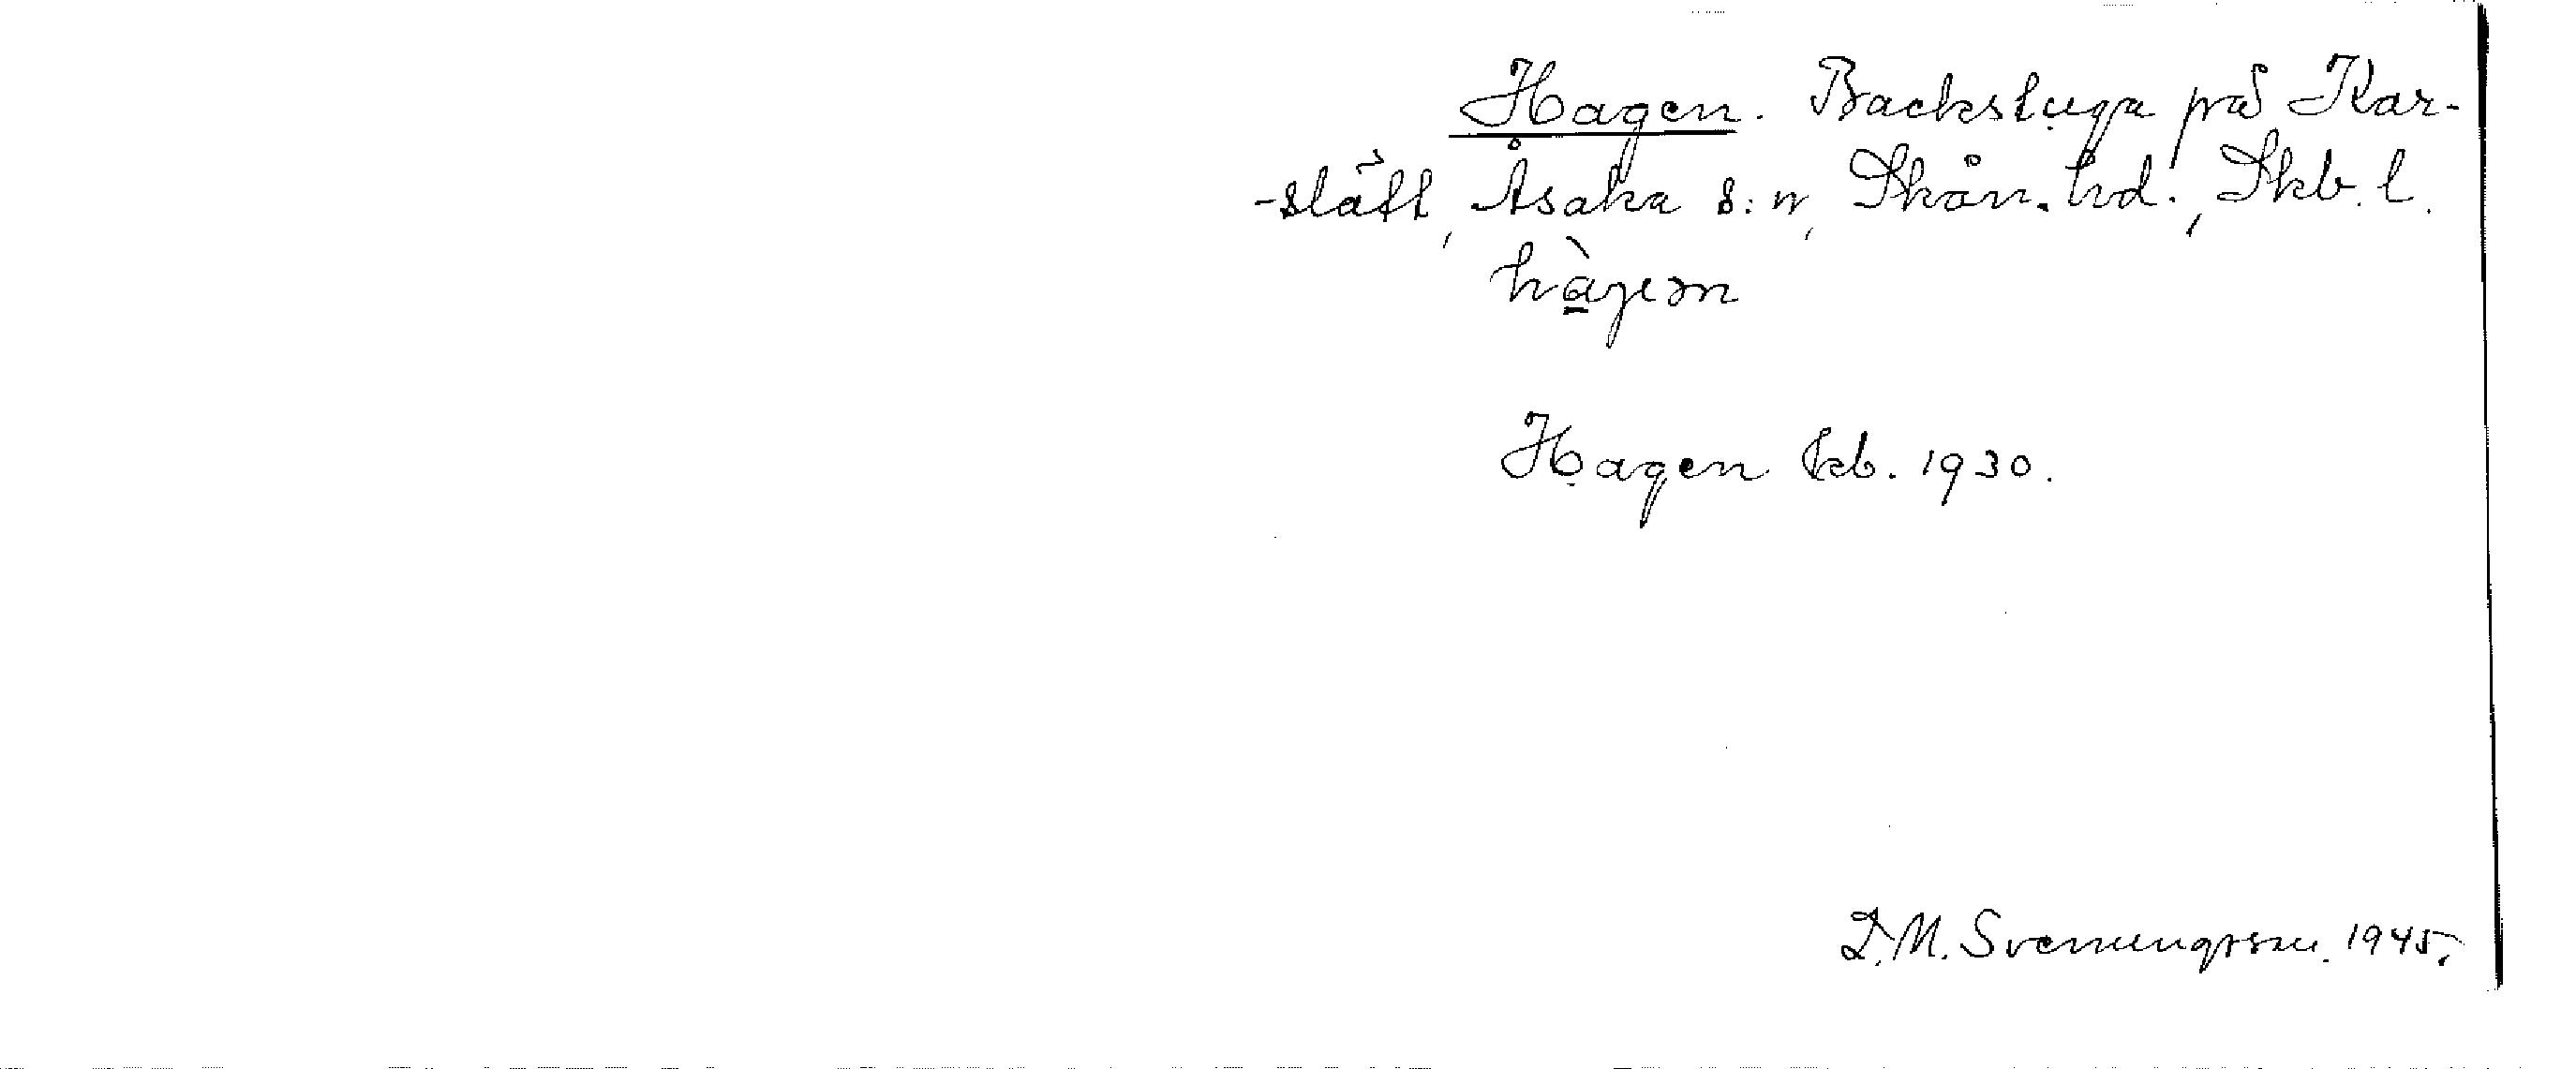 Hagen. Backstuga på Kar-
-slätt, Åsaka s:n, Skån. hd., Skb. l.
hàgen
Hagen kb. 1930.
D.M. Svenungsson. 1945.